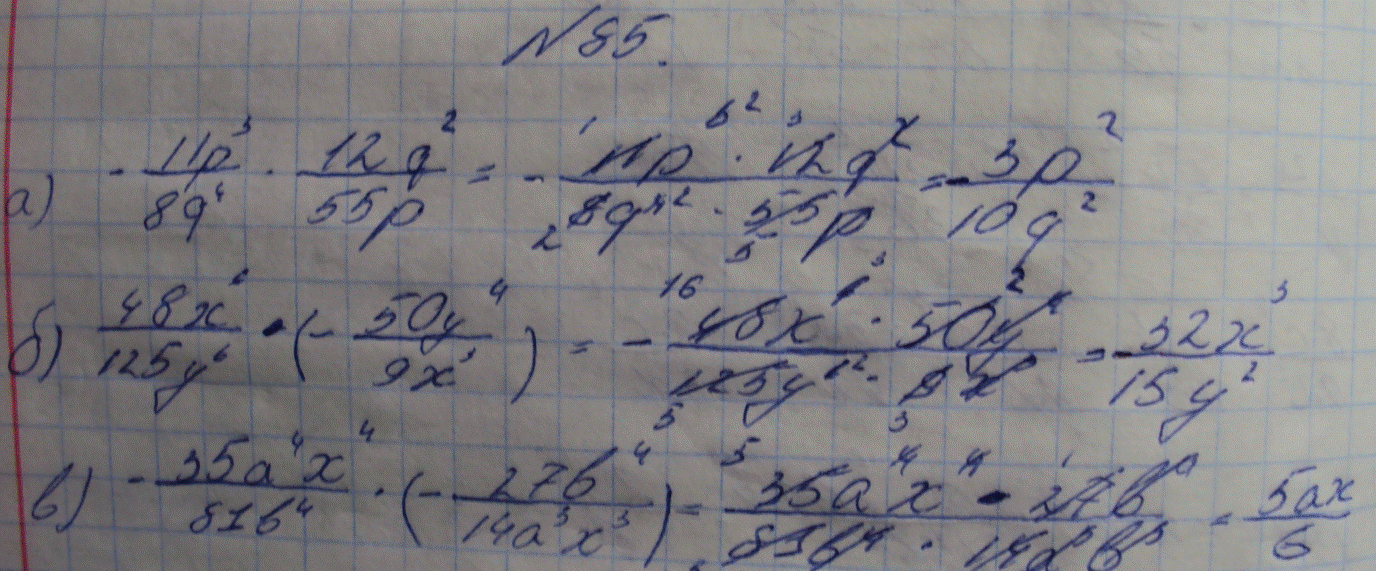 №85.
а) - 11p³/8q⁴ · 12q²/55p = - 11p³ · 12q²/8q⁴ · 55p = - 3p²/10q²
б) 48x⁶/125y⁶ · (- 50y⁴/9x³) = - 48x⁶ · 50y⁴/125y⁶ · 9x³ = - 32x³/15y²
в) - 35a⁴x⁴/81b⁴ · (- 27b⁴/14a³x³) = 35a⁴x⁴ · 27b⁴/81b⁴ · 14a³b³ = 5ax/6